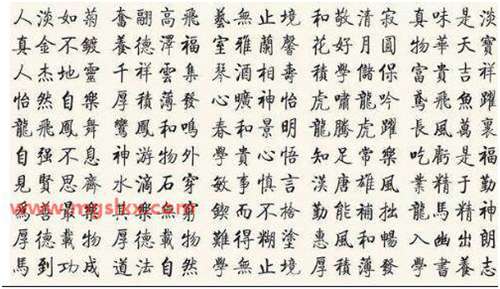 人淡如菊 奮翮高飛 藝無止境 和敬清寂 真味是淡
真金不鍍 養德澤福 室雅蘭馨 花好月圓 物華天寶
人杰地靈 千祥雲集 琴酒相壽 積學儲保 富貴吉祥
怡然自樂 厚積薄發 酒曠神怡 虎嘯龍吟 鳶飛魚躍
龍飛鳳舞 鸞鳳和鳴 春和景明 龍騰虎躍 長風萬裏
自强不息 神游物外 學貴心悟 知足常樂 吃虧是福
見賢思齊 水滴石穿 敏事慎言 漢唐雄風 業精於勤
鍥而不捨 勤能補拙 龍馬精神
厚德載物 難得糊塗 惠風和暢 入幽出朗
馬到功成 道法自然 學無止境 厚積薄發 學書養志